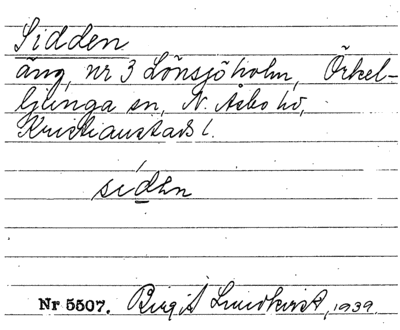 Sidden
äng, nr 3 Lönsjöholm, Örkel-
ljunga sn, N. Åsbo hd,
Kristianstads l.
sídən
Nr 5507. Birgit Lundkvist, 1939.